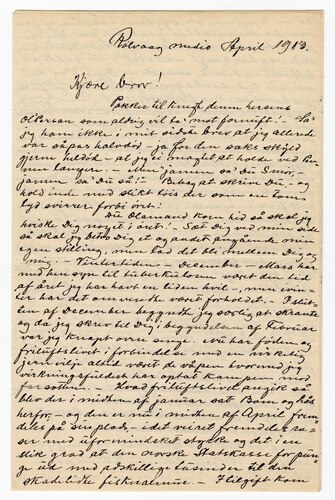 Rolvaag medio April 1913.
Kjære Drov!
Pokker til krugt denne hersens
Olsensan som aldrig vil ta' mot fornuft! - Sa'
jeg ham ikke i mit sidste brev at jeg allerede
var så par halvdöd, - ja for den saks skyld
gjerne heldöd - at jeg ei magtet at holde ved Pen-
nen længere. - Men jammen sa' Du Smör, -
jammen sa' Du så!! Behag at skrive Du - og
hold inde med slikt töis der som en tom
lyd svirrer forbi öret!
Du Olamand kom hid så skal jeg
hviske Dig noget i öret! Sæt Dig ved min side
så skal jeg betro Dig et og andet angående min
egen stilling, men lad det bli mellem Dig og
mig. - Vintertiden - December - Mars har
med hensyn til tuberkulosen været den tid
af året jeg har havt en liden hvil, - men i vin-
ter har det omvendte været forholdet. - I slut-
ten af December begyndte jeg såsmåt at skrante
og da jeg skrev til Dig i begyndelsen af Februar
var jeg knapt oven senge. Nu har föden og
friluftslivet i forbindelse med en virkelig
jernvilje altid været de våpen hvormed jeg
virkningsfuldest har optat kampen mod
farsotten. - Hvad friluftslivet angik så
blev der i midten af januar sat Bom og lås
herfor, - og den er nu i midten af April frem-
deles på sin plads, - idet veiret fremdeles ra-
ser med uformindsket styrke og det i en
slik grad at den norske Statskasse for pun-
ge ud med adskillige tusinder til den
skadelidte fiskeralmue. - Hilgift kom